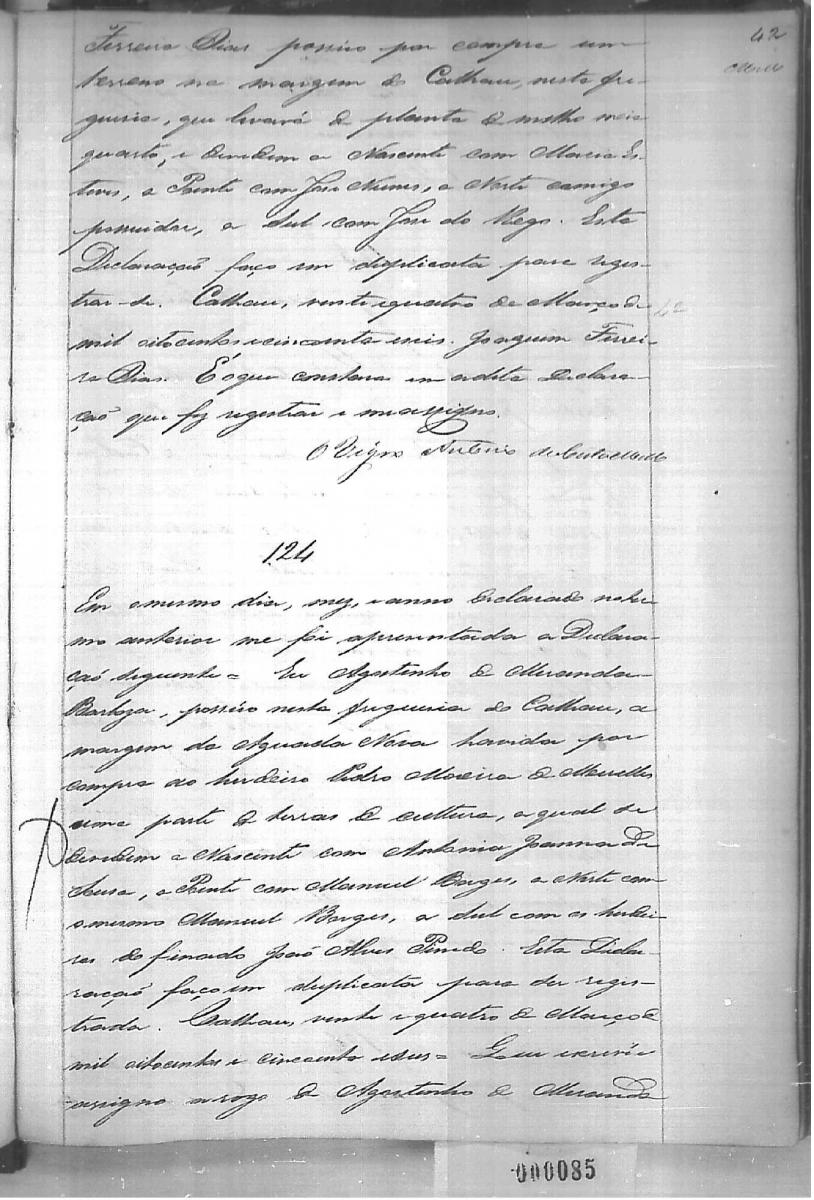 42
Ferreira Dias possuo por compra um
terreno na margem do Calhau, nesta fre-
guesia, que levará de planta de milho meia
quarta, e devidem a Nascente com Maria Es-
teves, a Poente com José Nunes, a Norte comigo
possuidor, a Sul com José do Rego. Esta
Declaração faço em duplicata para regis-
trar-se. Calhau, vente quatro de Março de
mil oitocentos e cincoenta e seis. Joaquim Ferrei-
ra Dias. É o que constava em a dita Declara-
ção que fiz registrar e me assigno.
O Vigro Antonio de
124
Em o mesmo dia, mez, e anno declarado no ter-
mo anterior me foi apresentada a Declara-
ção seguente = Eu Agostinho de Miranda
Barboza, possuo nesta freguesia do Calhau, a
margem da Aguada Nova havida por
compra ao herdeiro Pedro Moreira de Meirelles
uma parte de terras de cultura, a qual se
devidem a Nascente com Antonia Joanna de
Sousa, a Poente com Manuel Borges, a Norte com
o mesmo Manuel Borges, a Sul com os herdei-
ros do finado João Alves Pinedo. Esta Decla-
ração faço em duplicata para ser regis-
trada. Calhau, vente e quatro de Março de
mil oitocentos e cincoenta e seis = E eu escrevi e
assigno a rogo de Agostinho de Miranda
000085